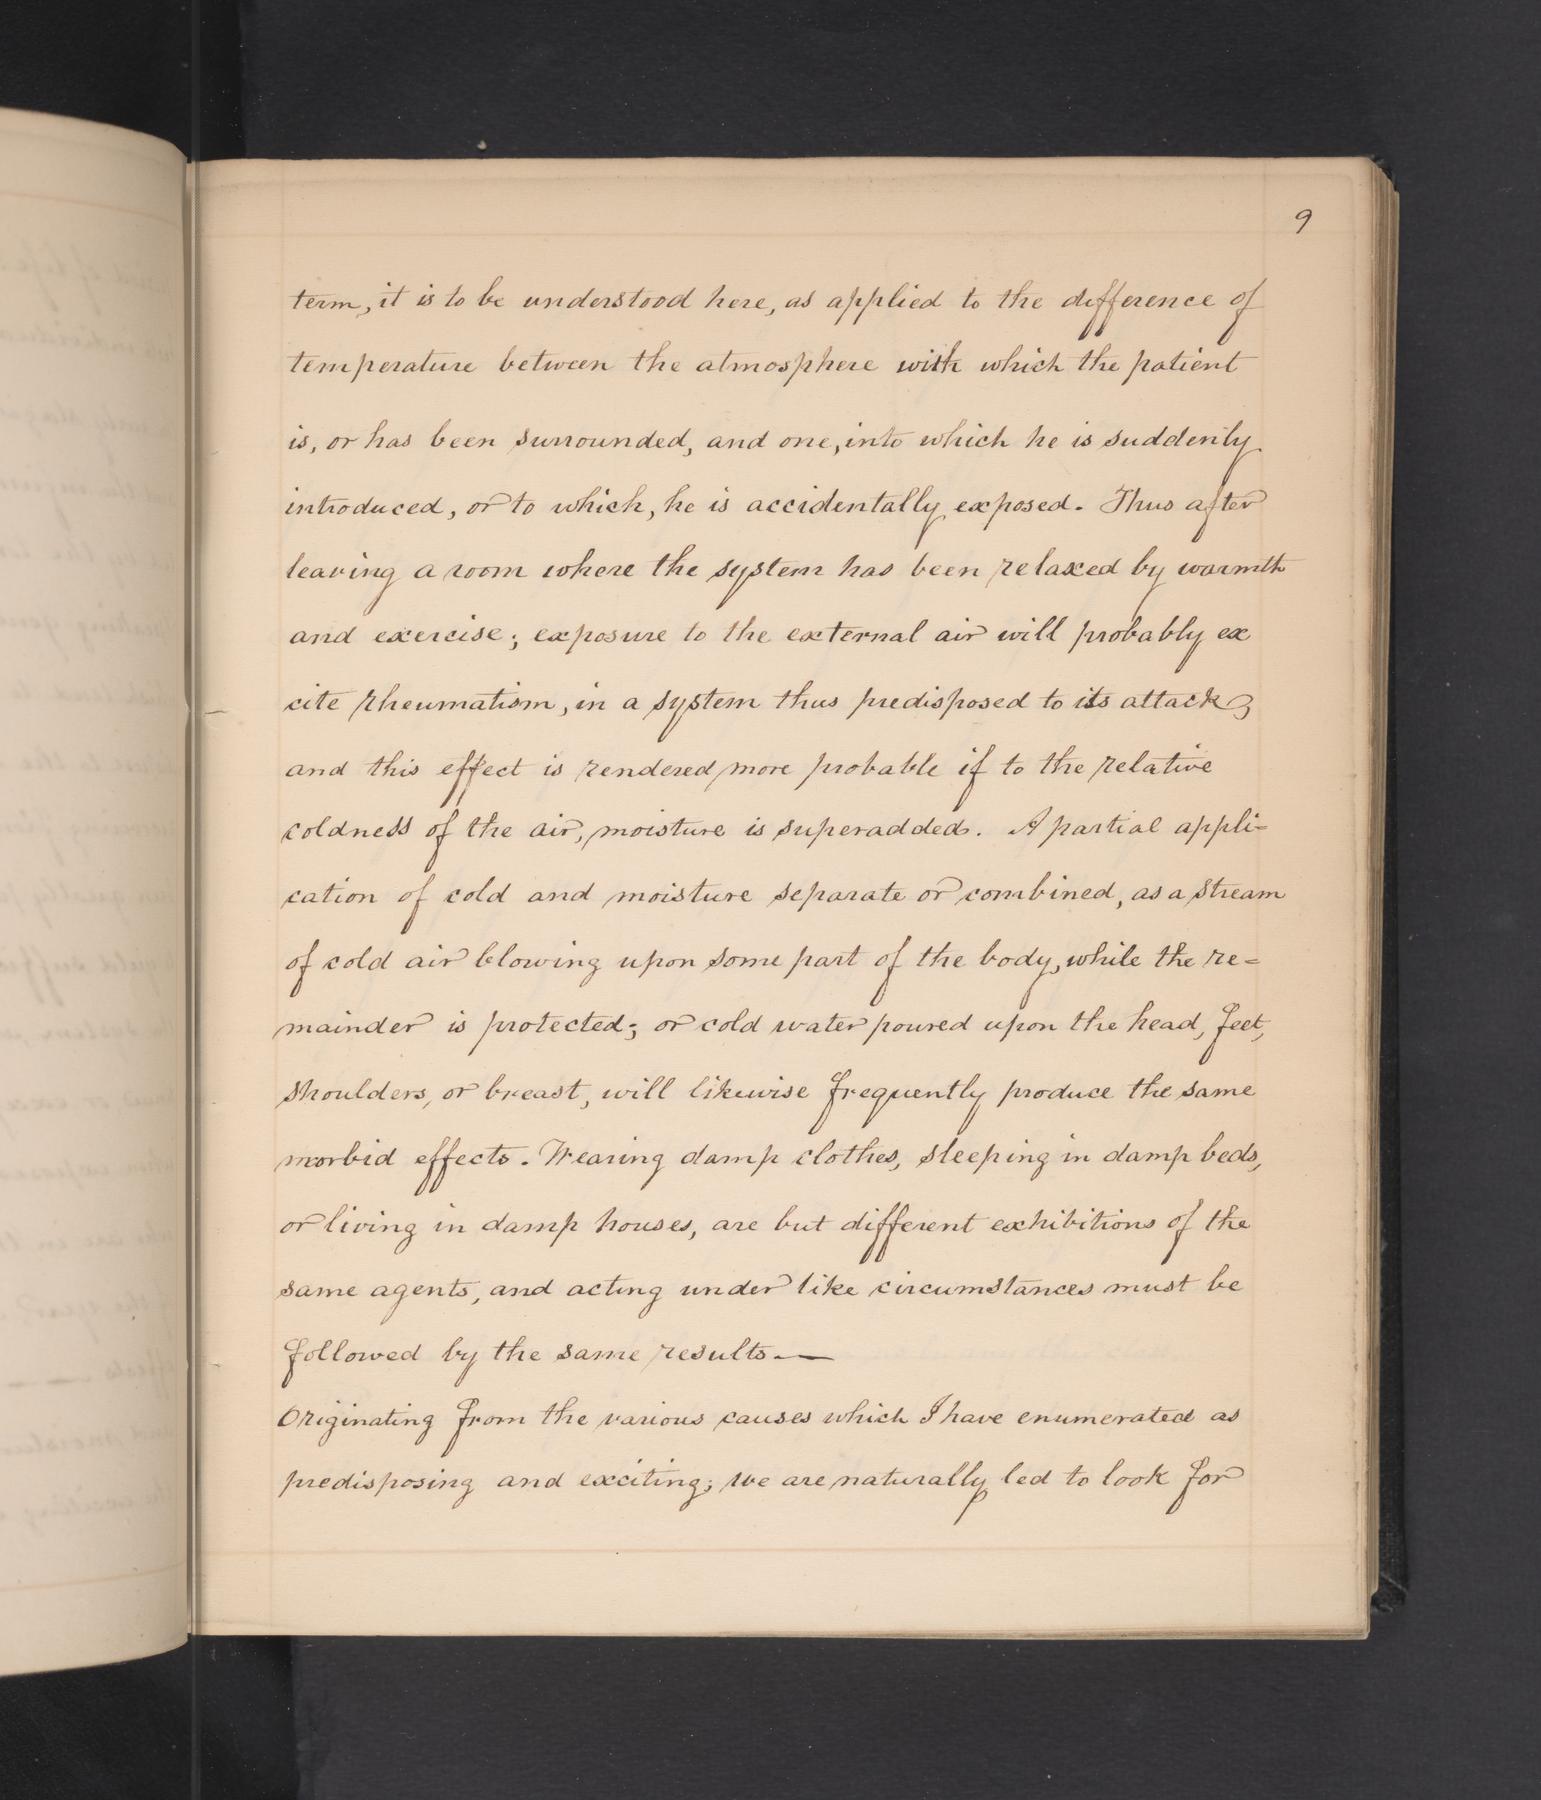 9
term, it is to be understood here, as applied to the difference of
temperature between the atmosphere with which the patient
is, or has been surrounded, and one, into which he is suddenly
introduced, or to which, he is accidentally exposed. Thus after
leaving a room where the system has been relaxed by warmth
and exercise; exposure to the external air will probably ex
cite rheumatism, in a system thus predisposed to its attack,
and this effect is rendered more probable if to the relative
coldness of the air, moisture is superadded. A partial appli=
cation of cold and moisture separate or combined, as a stream
of cold air blowing upon some part of the body, while the re=
mainder is protected; or cold water poured upon the head, feet,
shoulders, or breast, will likewise frequently produce the same
morbid effects. Wearing damp clothes, sleeping in damp beds,
or living in damp houses, are but different exhibitions of the
same agents, and acting under like circumstances must be
followed by the same results—
Originating from the various causes which I have enumerated as
predisposing and exciting; we are naturally led to look for